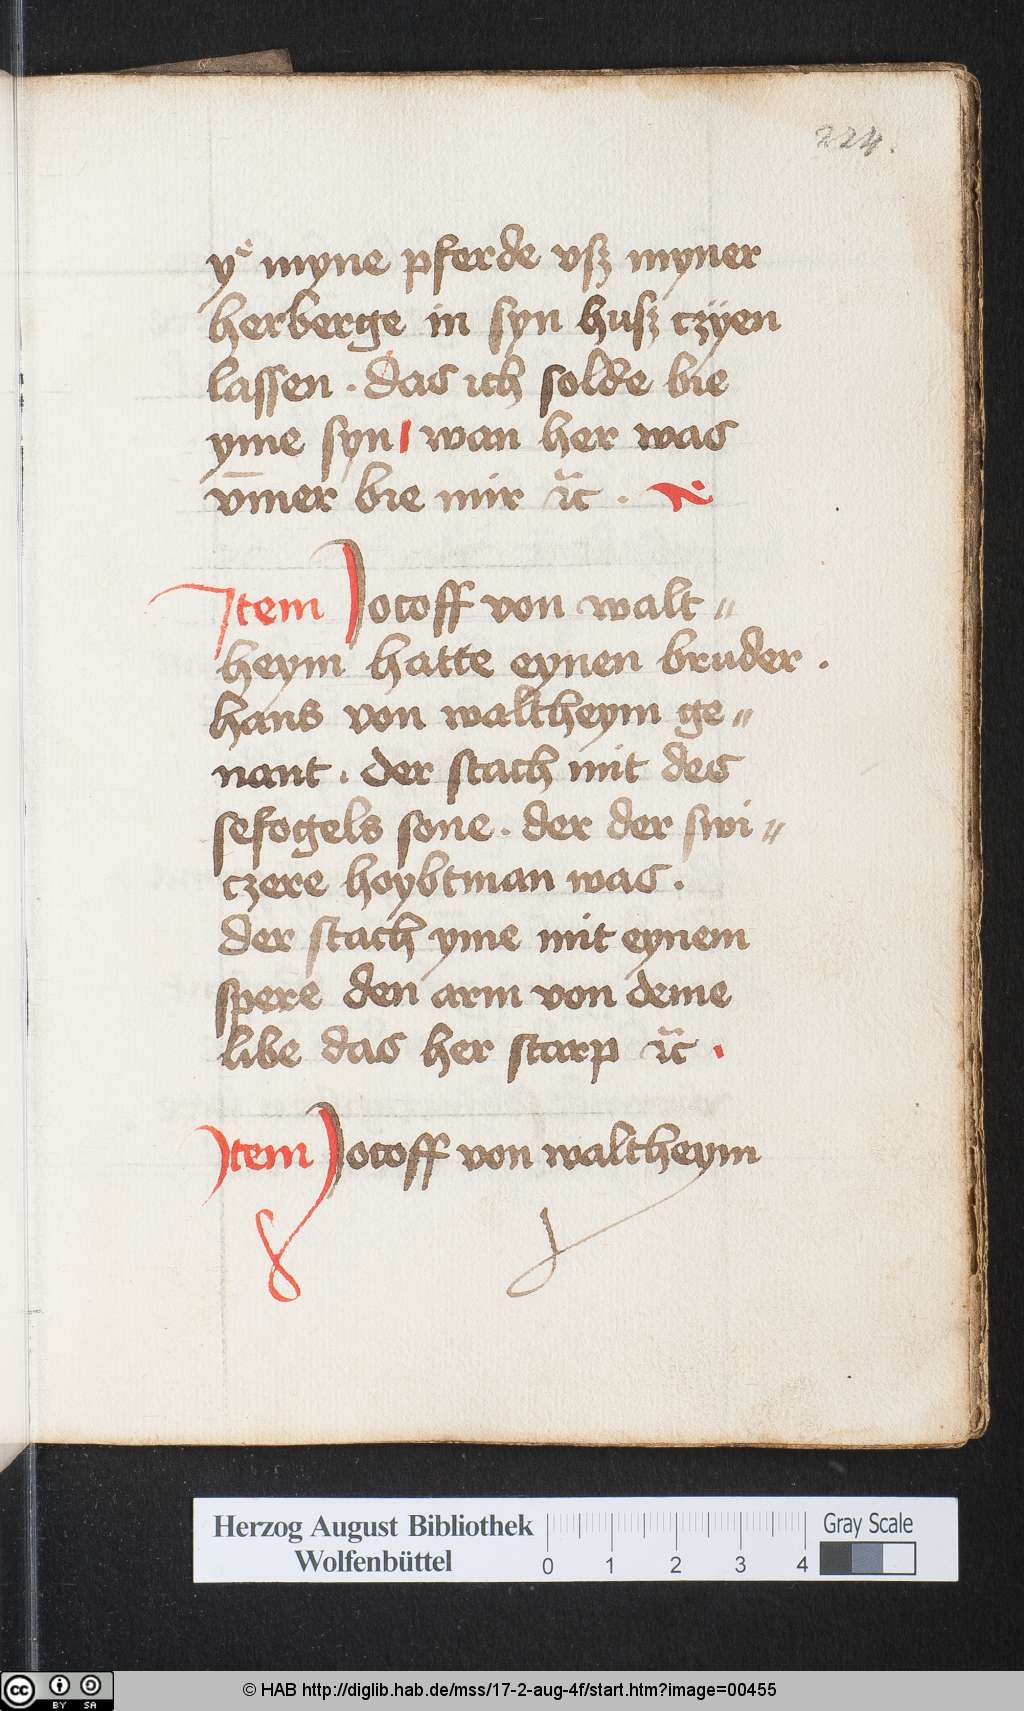 224.
yͤ myne pferde vsz myner
herberge in syn husz czÿen
lassen . das ich solde bie
yme syn wan her was
vm̄er bie mir ꝛc .
Item Jocoff von walt〃
heym hatte eynen bruder .
hans von waltheym ge〃
nant . der stach mit des
sefogels sone . der der swi〃
czere hoybtman was .
der stach yme mit eynem
spere den arm von deme
libe das her starp ꝛc .
Item Jocoff von waltheym
Herzog August Bibliothek
Wolfenbüttel
0 1 2 3 4
Gray Scale
cc BY SA
© HAB http://diglib.hab.de/mss/17-2-aug-4f/start.htm?image=00455